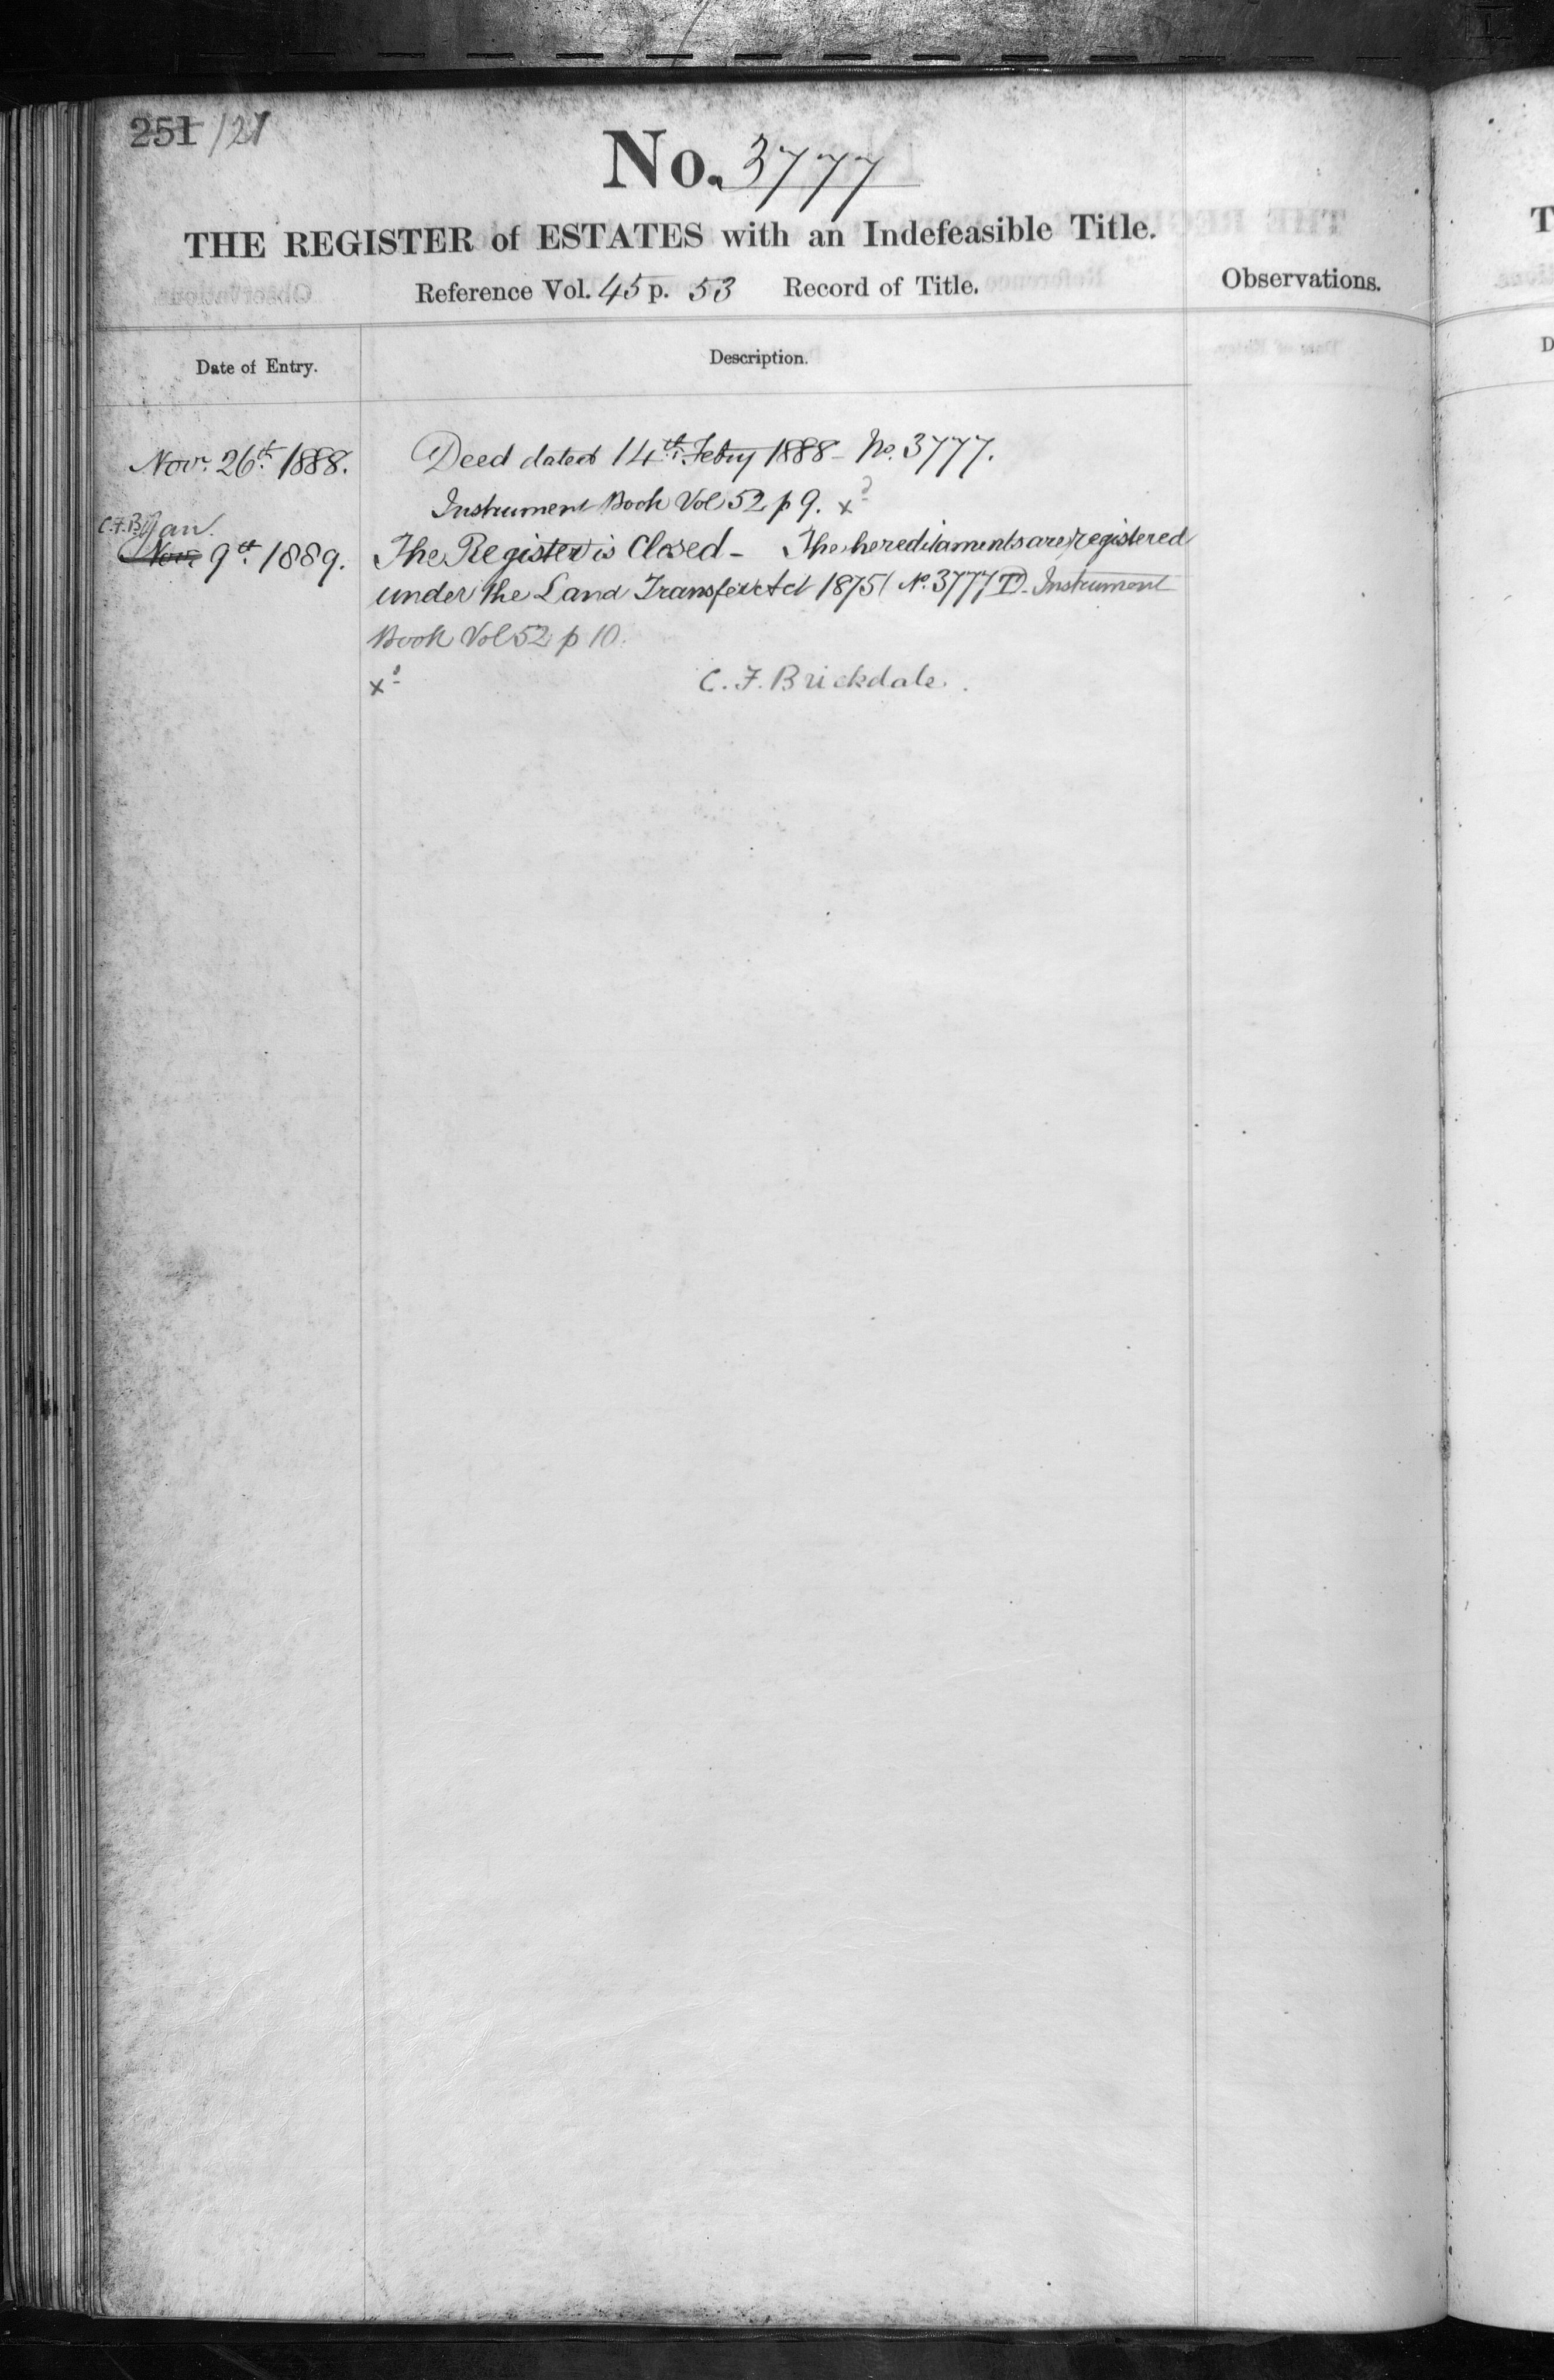 251/21
No. 3777
THE REGISTER of ESTATES with an Indefeasible Title.
Reference Vol. 45 p. 53 Record of Title.
Observations.
Date of Entry.
Description.
Novr. 26th 1888.
Deed dated 14th Febry 1888 - No. 3777.
Instrument Book Vol 52 p 9. xd
C.F.B. Jan.
Novr 9th 1889.
The Register is Closed - The hereditaments are registered
under the Land Transfer Act 1875 (No. 3777 D. Instrument
Book Vol 52 p 10.
xd
C. F. Brickdale.